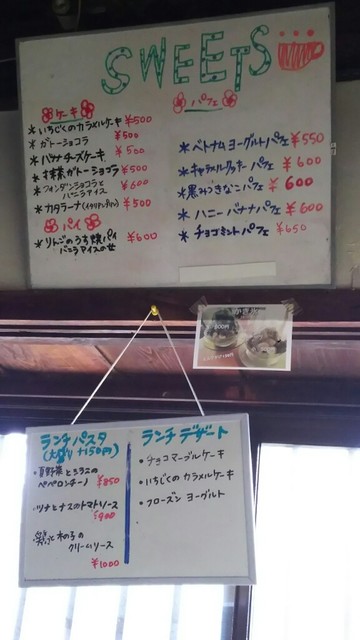 SWEETS
ケーキ
＊いちじくのカラメルケーキ ¥500
＊ガトーショコラ ¥500
＊バナナチーズケーキ ¥500
＊抹茶ガトーショコラ ¥500
＊フォンダンショコラと
バニラアイス ¥600
＊カタラーナ(イタリアンプリン) ¥500
パイ
＊りんごのうす焼パイ
バニラアイスのせ ¥600
パフェ
＊ベトナムヨーグルトパフェ ¥550
＊キャラメルクッキーパフェ ¥600
＊黒みつきなこパフェ ¥600
＊ハニーバナナパフェ ¥600
＊チョコミントパフェ ¥650
ランチパスタ
(大盛り +150円)
・夏野菜とシラスの
ペペロンチーノ ¥850
・ツナとナスのトマトソース
¥900
木の子の
クリームソース
¥1000
ランチ デザート
・チョコマーブルケーキ
・いちじくの カラメルケーキ
・フローズン ヨーグルト